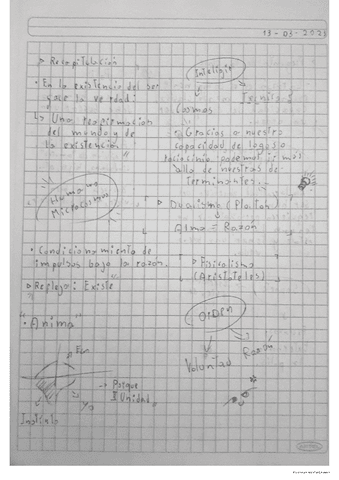 13-03-2023
▹ Recapitulación
• En la existencia del ser
yace la verdad:
↳ Una reafirmación
del mundo y de
la existencia.
Humano
Microcosmos
• Condicionamiento de
impulsos bajo la razón.
▹ Reflejo: Existe
• "Anima"
→ Porque
Unidad
Instinto
Cosmos
Gracias a nuestra
capacidad de logos o
raciocinio podemos ir más
allá de nuestras de-
terminantes.
▹ Dualismo (Platón)
Alma = Razón
▹ Fisicalismo
(Aristóteles)
Orden
Razón
Voluntad